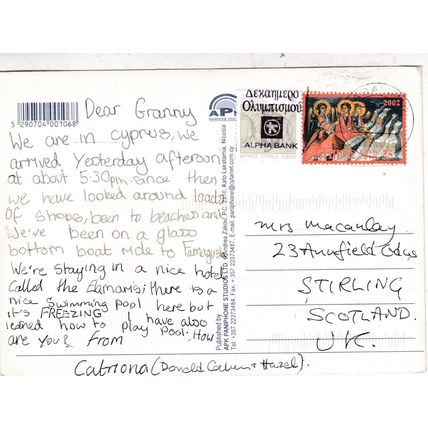 5 290704 001068
Dear Granny
We are in cyprus, we
arrived Yesterday afternoon
at about 5:30pm, since then
we have looked around loads
of shops, been to beaches and
We've been on a glass
bottom boat ride to Famagusta
We're staying in a nice hotel
Called the there is a
nice swimming pool here but
it's FREEZING I have also
learned how to play pool. How
are you? From
Catriona (Donald + Hazel).
Published by
APK PANIPHONE STUDIOS LTD.
API
Δεκαήμερο
Ολυμπισμού
ALPHA BANK
2002
Mrs Macaulay
23
STIRLING
SCOTLAND.
UK.